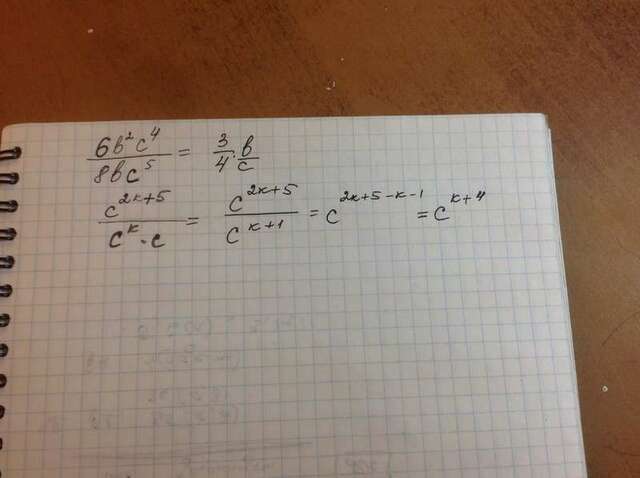 6b²c⁴/8bc⁵ = 3/4 · b/c
c^(2k+5)/(c^k · c) = c^(2k+5)/c^(k+1) = c^(2k+5-k-1) = c^(k+4)